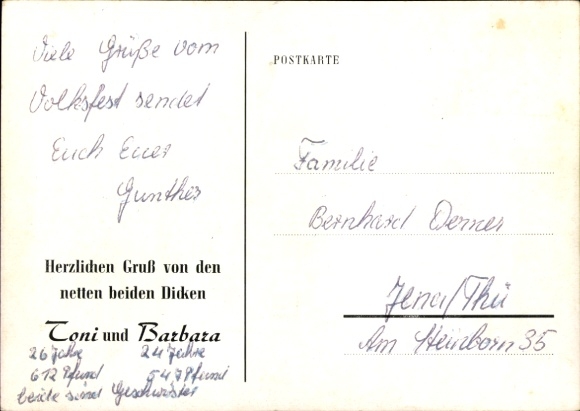 Viele Grüße vom
Volksfest sendet
Euch Euer
Gunther
Herzlichen Gruß von den
netten beiden Dicken
Toni und Barbara
26 Jahre 24 Jahre
612 Pfund 547 Pfund
beide sind Geschwister
POSTKARTE
Familie
Bernhard Derner
Jena/Thü
Am Steinborn 35